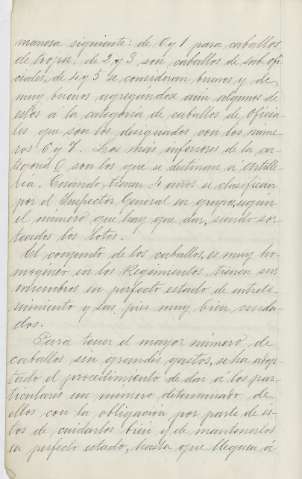 manera siguiente: de 0 y 1 para caballos
de tropa; de 2 y 3 son caballos de sub ofi
ciales, de 4 y 5 se consideran buenos y de
muy buenos agregándose aún algunos de
estos á la categoría de caballos de oficia
les que son los designados con los núme
ros 6 y 7. Los más inferiores de la ca
tegoría 0 son los que se destinan á Artille
ría. Cuando tienen 4 años se clasifican
por el Inspector General en grupos, según
el número que hay que dar, siendo sor
teados los lotes.
El conjunto de los caballos, es muy ho
mogéneo en los Regimientos, tienen sus
miembros en perfecto estado de entrete
nimiento y sus pies muy bien cuida
dos.
Para tener el mayor número, de
caballos sin grandes gastos, se ha adop
tado el procedimiento de dar á los par
ticulares un número determinado de
ellos con la obligación por parte de es
tos de cuidarlos bien y de mantenerlos
en perfecto estado, hasta que lleguen á